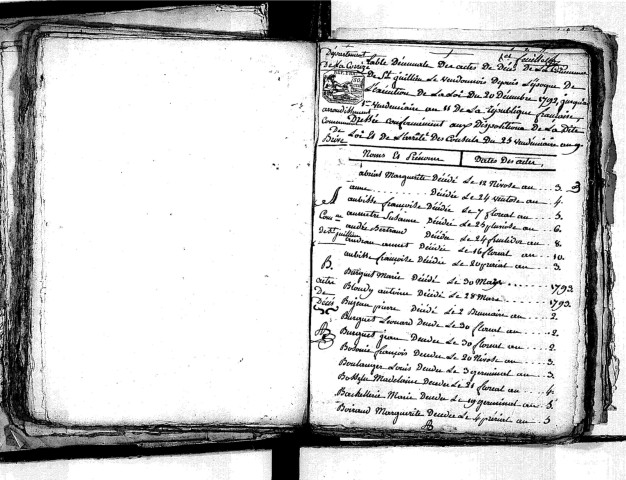 1er feuillet
Département De La Corrèze
Table Décennale Des actes de Décès De La Commune
De St quillien Le vendonnois Depuis L'époque De
L'exécution De La Loi Du 20 Décembre 1792, jusqu'au
1er vendemiaire an 11 de La république française,
arrondissement Communal De Brive
Dressée conformément aux Dispositions De La Dite
Loi Et De L'arrêté Des Consuls Du 25 vendemiaire an 9
Noms Et Prénoms Dates Des actes,
abeint Marguerite Décédé Le 12 Nivose an 3.
anne Décédé Le 24 ventose an 4.
A
aubisse françoise Décédée Le 7 floreal an 5.
Com ne
Susanne Décédée Le 25 pluviose an 6.
de St quillien
Bertrand Décédé Le 24 fructidor an 8.
Décédée Le 16 floreal an 10.
aubisse françoise Décédée Le 20 prairial an 3.
B.
Burguet Marie Décédé Le 30 Mars 1793
acte De Décès
Bloudy antoine Décédé Le 28 Mars 1793.
Bujeau pierre Décédé Le 2 Brumaire an 2.
Burguet Leonard Decede Le 30 floreal an 2.
Burguet jean Decedee Le 30 floreal an 2.
françois Decedee Le 20 Nivose an 3.
Boulanger Louis Decedee Le 3 germinal an 3.
Madelaine Decedee Le 21 floreal an 4.
Marie Decedee Le 19 germinal an 5.
Boiraud Marguerite Decedee Le 4 prairial an 5